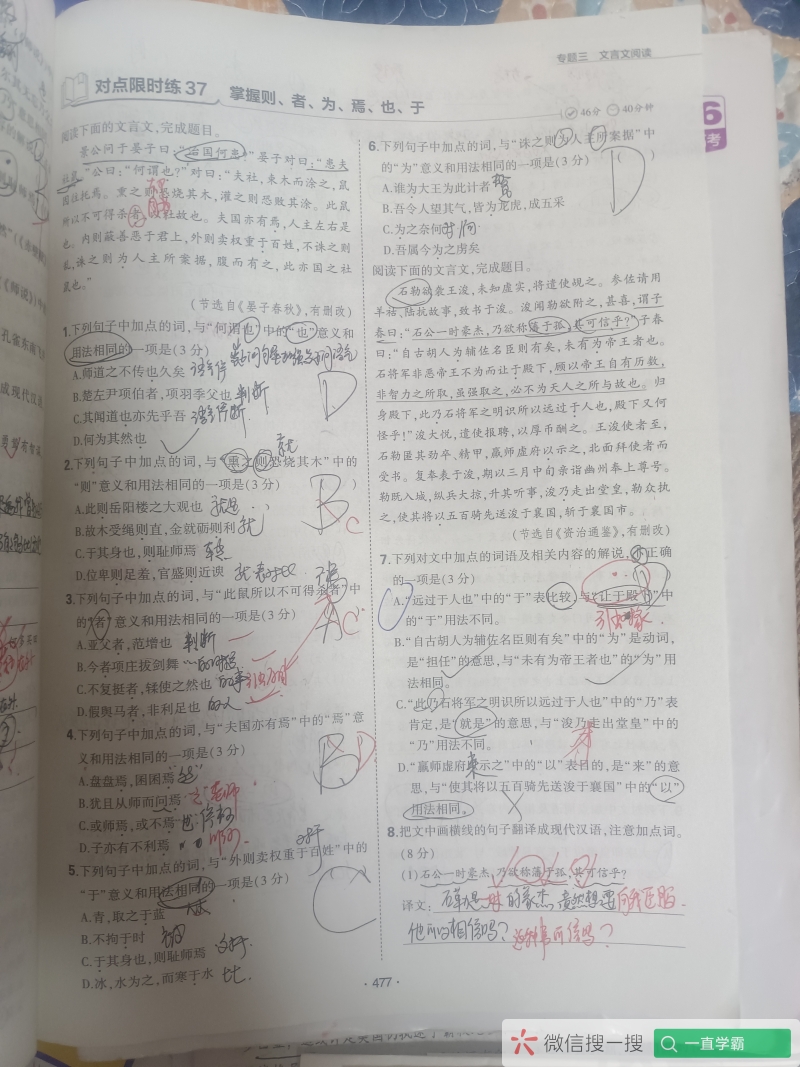 专题三 文言文阅读
对点限时练 37 掌握则、者、为、焉、也、于
46分 40分钟
阅读下面的文言文,完成题目。
景公问于晏子曰:“治国何患?”晏子对曰:“患夫
社鼠。”公曰:“何谓也?”对曰:“夫社,束木而涂之,鼠
因往托焉。熏之则恐烧其木,灌之则恐败其涂。此鼠
所以不可得杀者,以社故也。夫国亦有焉,人主左右是
也。内则蔽善恶于君上,外则卖权重于百姓,不诛之则
乱,诛之则为人主所案据,腹而有之,此亦国之社
鼠也。”
(节选自《晏子春秋》,有删改)
1.下列句子中加点的词,与“何谓也”中的“也”意义和
用法相同的一项是(3分)
A.师道之不传也久矣
B.楚左尹项伯者,项羽季父也 判断
C.其闻道也亦先乎吾
D.何为其然也
D
2.下列句子中加点的词,与“熏之则恐烧其木”中的
“则”意义和用法相同的一项是(3分) ( )
就
A.此则岳阳楼之大观也 就是
B.故木受绳则直,金就砺则利 就
C.于其身也,则耻师焉
D.位卑则足羞,官盛则近谀
B C
3.下列句子中加点的词,与“此鼠所以不可得杀者”中
的“者”意义和用法相同的一项是(3分)
A.亚父者,范增也 判断
B.今者项庄拔剑舞
C.不复挺者,𫐓使之然也
D.假舆马者,非利足也 的人
A C
4.下列句子中加点的词,与“夫国亦有焉”中的“焉”意
义和用法相同的一项是(3分)
A.盘盘焉,囷囷焉
B.犹且从师而问焉 之 老师
C.或师焉,或不焉 也
D.子亦有不利焉
B D
5.下列句子中加点的词,与“外则卖权重于百姓”中的
“于”意义和用法相同的一项是(3分)
对于
A.青,取之于蓝 从
B.不拘于时 被
C.于其身也,则耻师焉 对于
D.冰,水为之,而寒于水 比
C
6.下列句子中加点的词,与“诛之则为人主所案据”中
的“为”意义和用法相同的一项是(3分) ( )
A.谁为大王为此计者
B.吾令人望其气,皆为龙虎,成五采
C.为之奈何
D.吾属今为之虏矣
D
阅读下面的文言文,完成题目。
石勒欲袭王浚,未知虚实,将遣使觇之。参佐请用
羊祜、陆抗故事,致书于浚。浚闻勒欲附之,甚喜,谓子
春曰:“石公一时豪杰,乃欲称藩于孤,其可信乎?”子春
曰:“自古胡人为辅佐名臣则有矣,未有为帝王者也。
石将军非恶帝王不为而让于殿下,顾以帝王自有历数,
非智力之所取,虽强取之,必不为天人之所与故也。归
身殿下,此乃石将军之明识所以远过于人也,殿下又何
怪乎!”浚大悦,遣使报聘,以厚币酬之。王浚使者至,
石勒匿其劲卒、精甲,羸师虚府以示之,北面拜使者而
受书。复奉表于浚,期以三月中旬亲诣幽州奉上尊号。
勒既入城,纵兵大掠,升其听事,浚乃走出堂皇,勒众执
之,使其将以五百骑先送浚于襄国,斩于襄国市。
(节选自《资治通鉴》,有删改)
7.下列对文中加点的词语及相关内容的解说,不正确
的一项是(3分)
A.“远过于人也”中的“于”表比较,与“让于殿下”中
的“于”用法不同。
B.“自古胡人为辅佐名臣则有矣”中的“为”是动词,
是“担任”的意思,与“未有为帝王者也”的“为”用
法相同。
C.“此乃石将军之明识所以远过于人也”中的“乃”表
肯定,是“就是”的意思,与“浚乃走出堂皇”中的
“乃”用法不同。
D.“羸师虚府以示之”中的“以”表目的,是“来”的意
思,与“使其将以五百骑先送浚于襄国”中的“以”
用法相同。
8.把文中画横线的句子翻译成现代汉语,注意加点词。
(8分)
(1)石公一时豪杰,乃欲称藩于孤,其可信乎?
译文:
· 477 ·
微信搜一搜
一直学霸